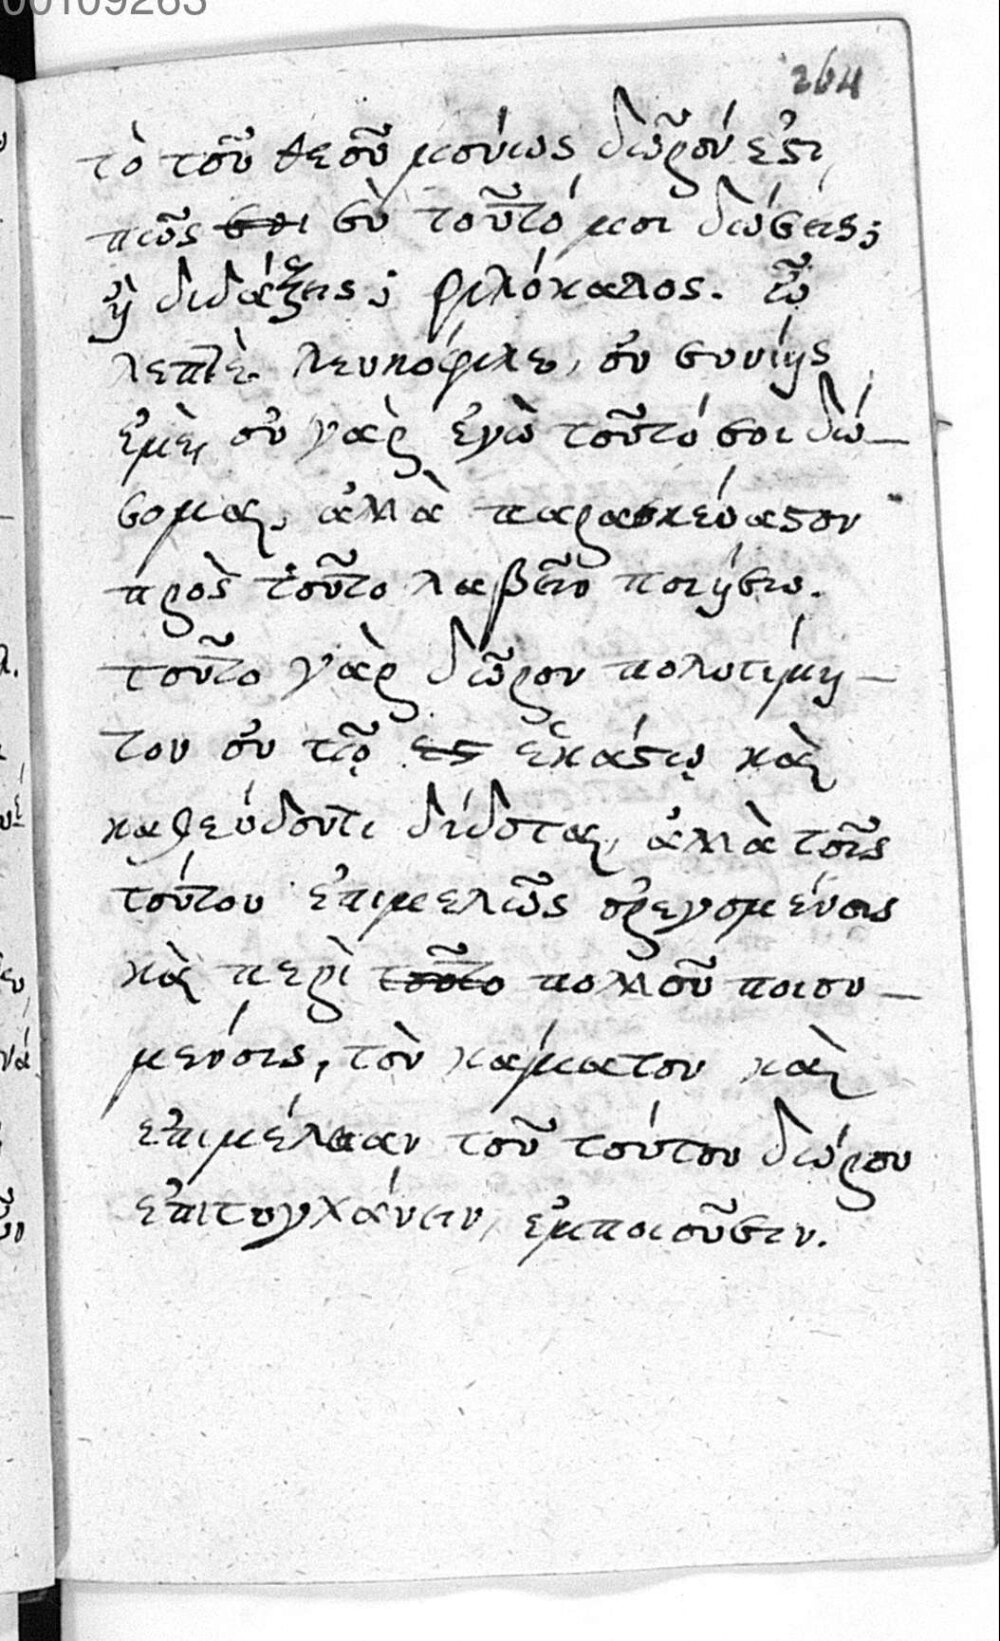 00109263
264
τὸ τοῦ θεοῦ μούως δῶρόν ἐστι,
πῶς σοι σὺ τοῦτό μοι δώσεις;
ἢ διδάξεις; φιλόκαλος. ὦ
λεπτὲ λευκόφιλε, οὐ συνίης
ἐμὲ, οὐ γὰρ ἐγὼ τοῦτό σοι δώ-
σομαι, ἀλλὰ παρασκεύαστον
πρὸς τοῦτο λαβεῖν ποιήσω.
τοῦτο γὰρ δῶρον πολυτίμη-
τον οὐ τῷ ες ἑκάστῳ καὶ
καθεύδοντι δίδοται, ἀλλὰ τοῖς
τούτου ἐπιμελῶς ὀρεγομένοις
καὶ περὶ τοῦτο πολλοῦ ποιου-
μένοις, τὸν κάματον καὶ
ἐπιμέλειαν τοῦ τούτου δώρου
ἐπιτυγχάνειν, ἐμποιοῦσιν.